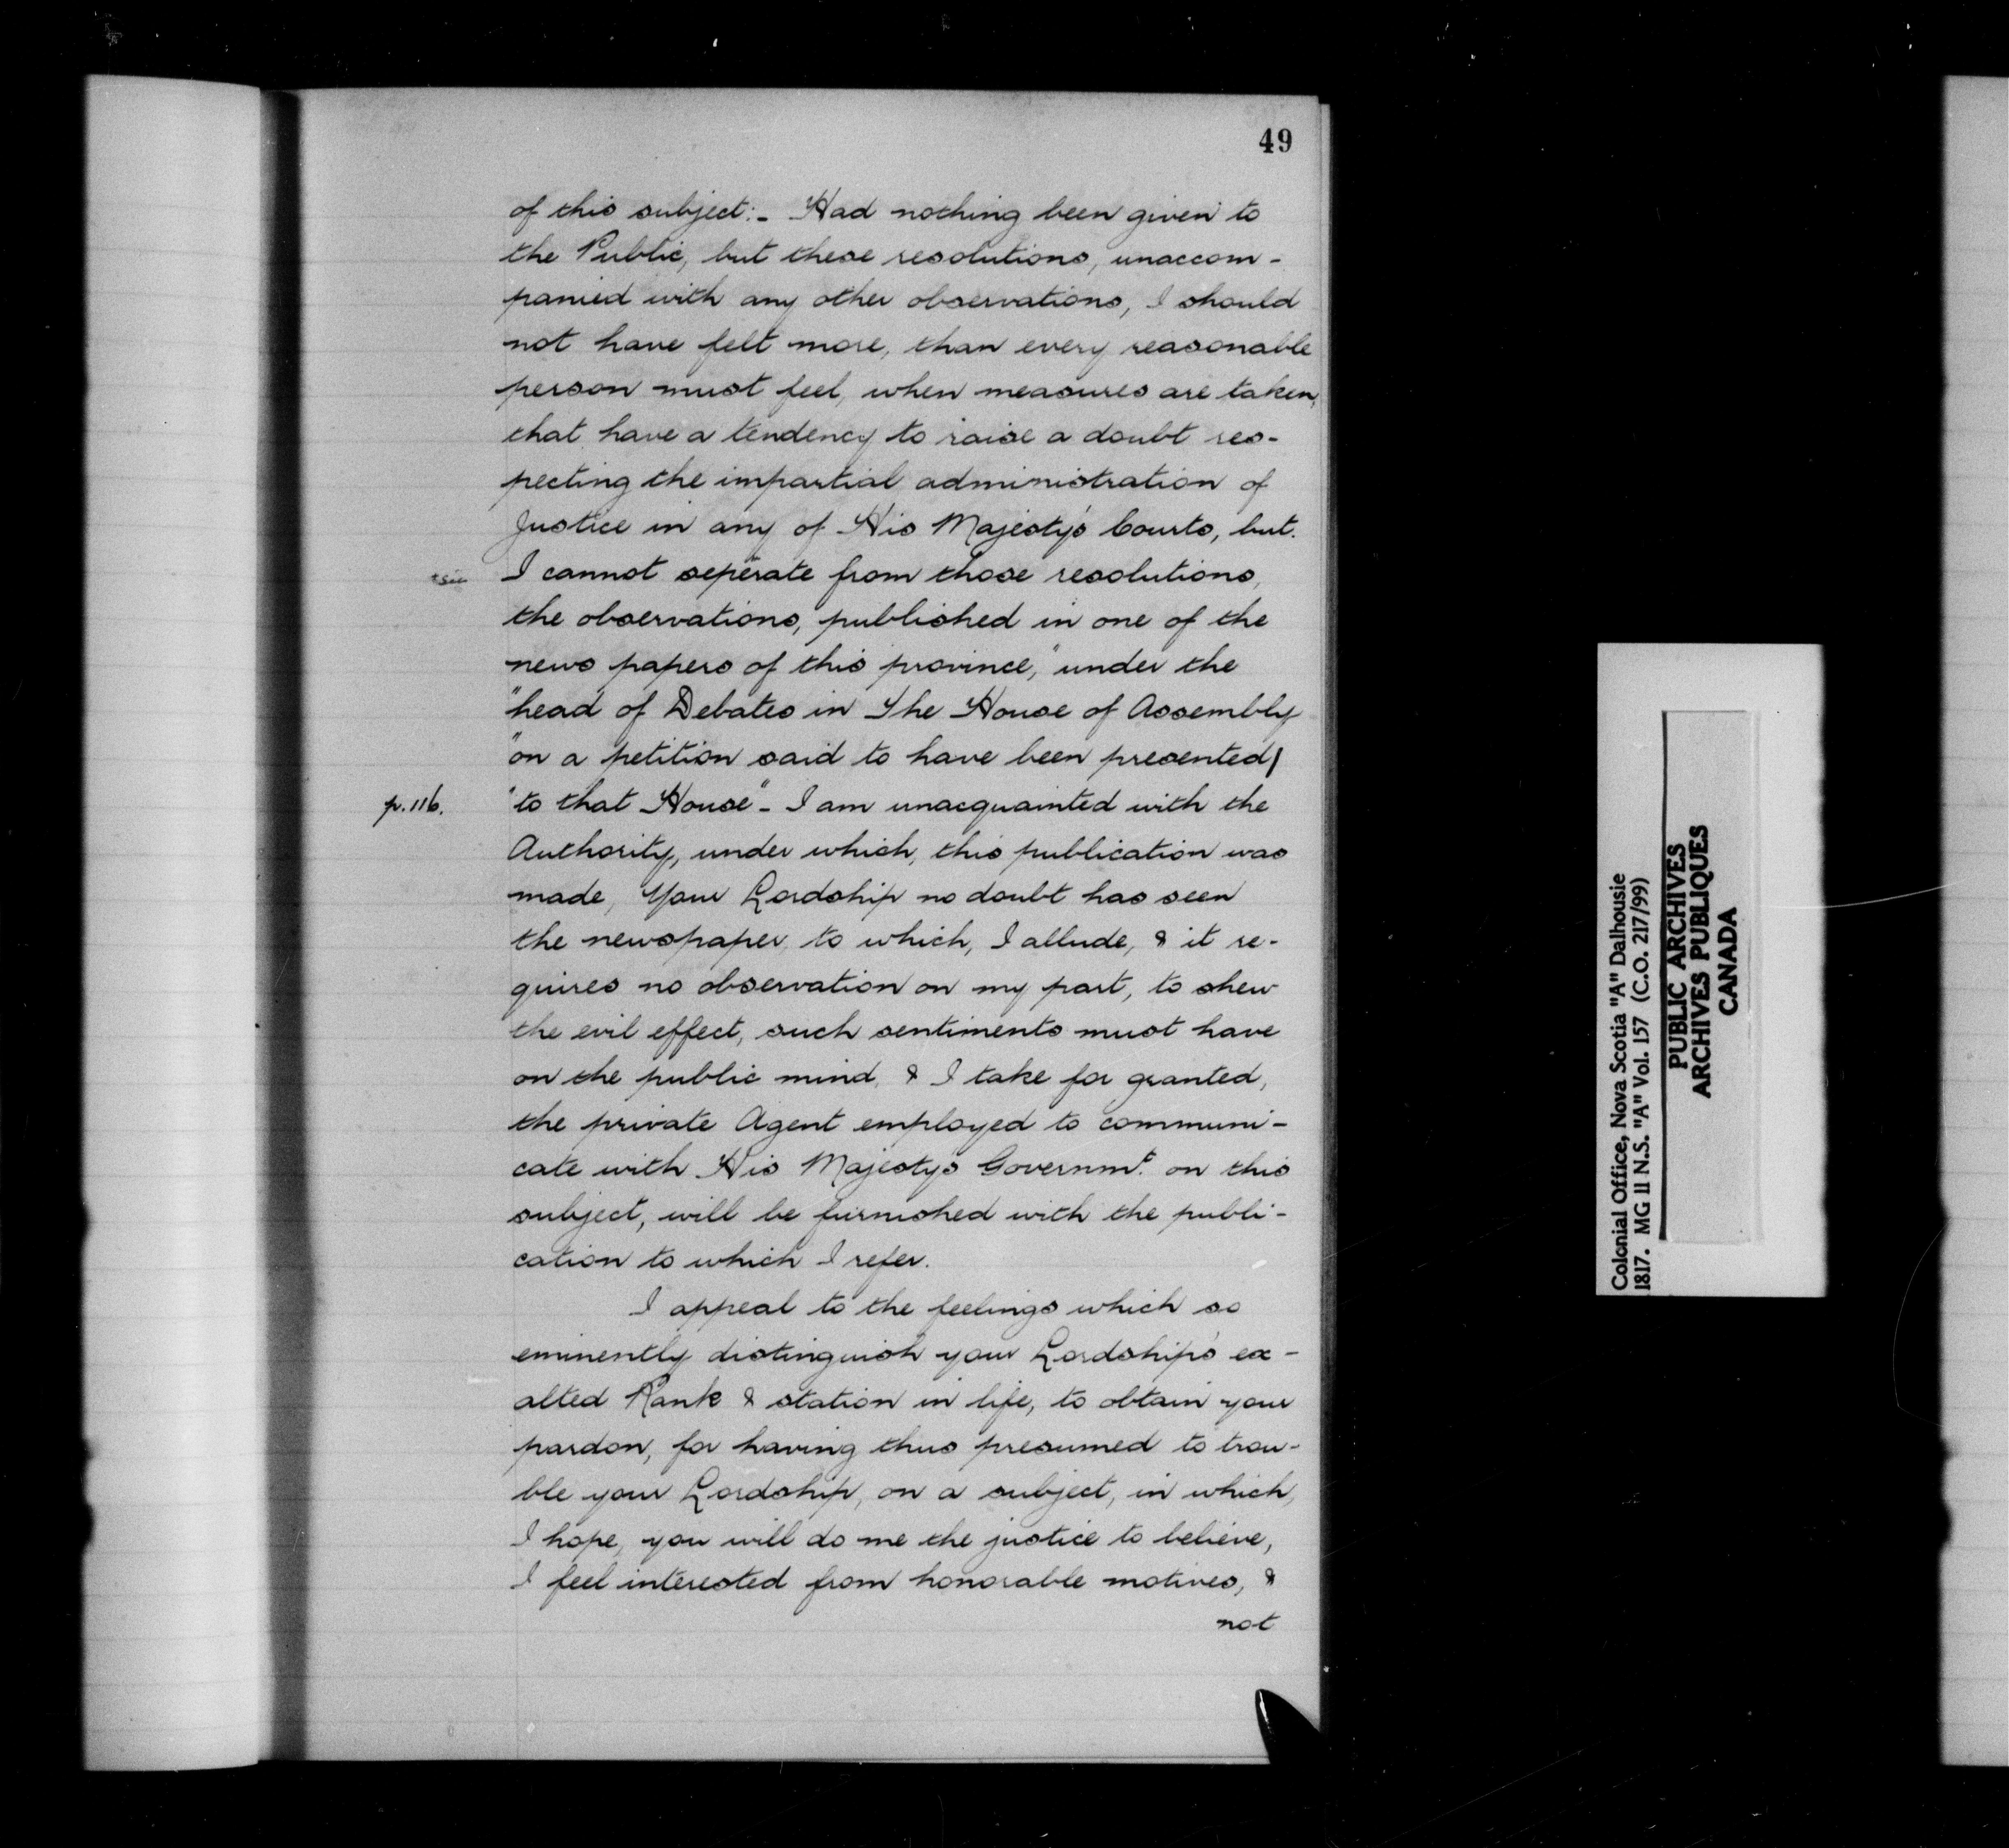 49
of this subject:- Had nothing been given to
the Public, but these resolutions, unaccom-
panied with any other observations, I should
not have felt more, than every reasonable
person must feel, when measures are taken,
that have a tendency to raise a doubt res-
pecting the impartial administration of
Justice in any of His Majesty's Courts, but.
*sic I cannot seperate from those resolutions,
the observations, published in one of the
news papers of this province, "under the
"head of Debates in The House of Assembly
"on a petition said to have been presented/
p.116. "to that House" - I am unacquainted with the
Authority, under which, this publication was
made, Your Lordship no doubt has seen
the newspaper, to which, I allude, & it re-
quires no observation on my part, to shew
the evil effect, such sentiments must have
on the public mind, & I take for granted,
the private Agent employed to communi-
cate with His Majesty's Governmt. on this
subject, will be furnished with the publi-
cation to which I refer.
I appeal to the feelings which so
eminently distinguish your Lordship's ex-
alted Rank & station in life, to obtain your
pardon, for having thus presumed to trou-
ble your Lordship, on a subject, in which,
I hope, you will do me the justice to believe,
I feel interested from honorable motives, &
not
Colonial Office, Nova Scotia "A" Dalhousie
1817. MG 11 N.S. "A" Vol. 157 (C.O. 217/99)
PUBLIC ARCHIVES
ARCHIVES PUBLIQUES
CANADA